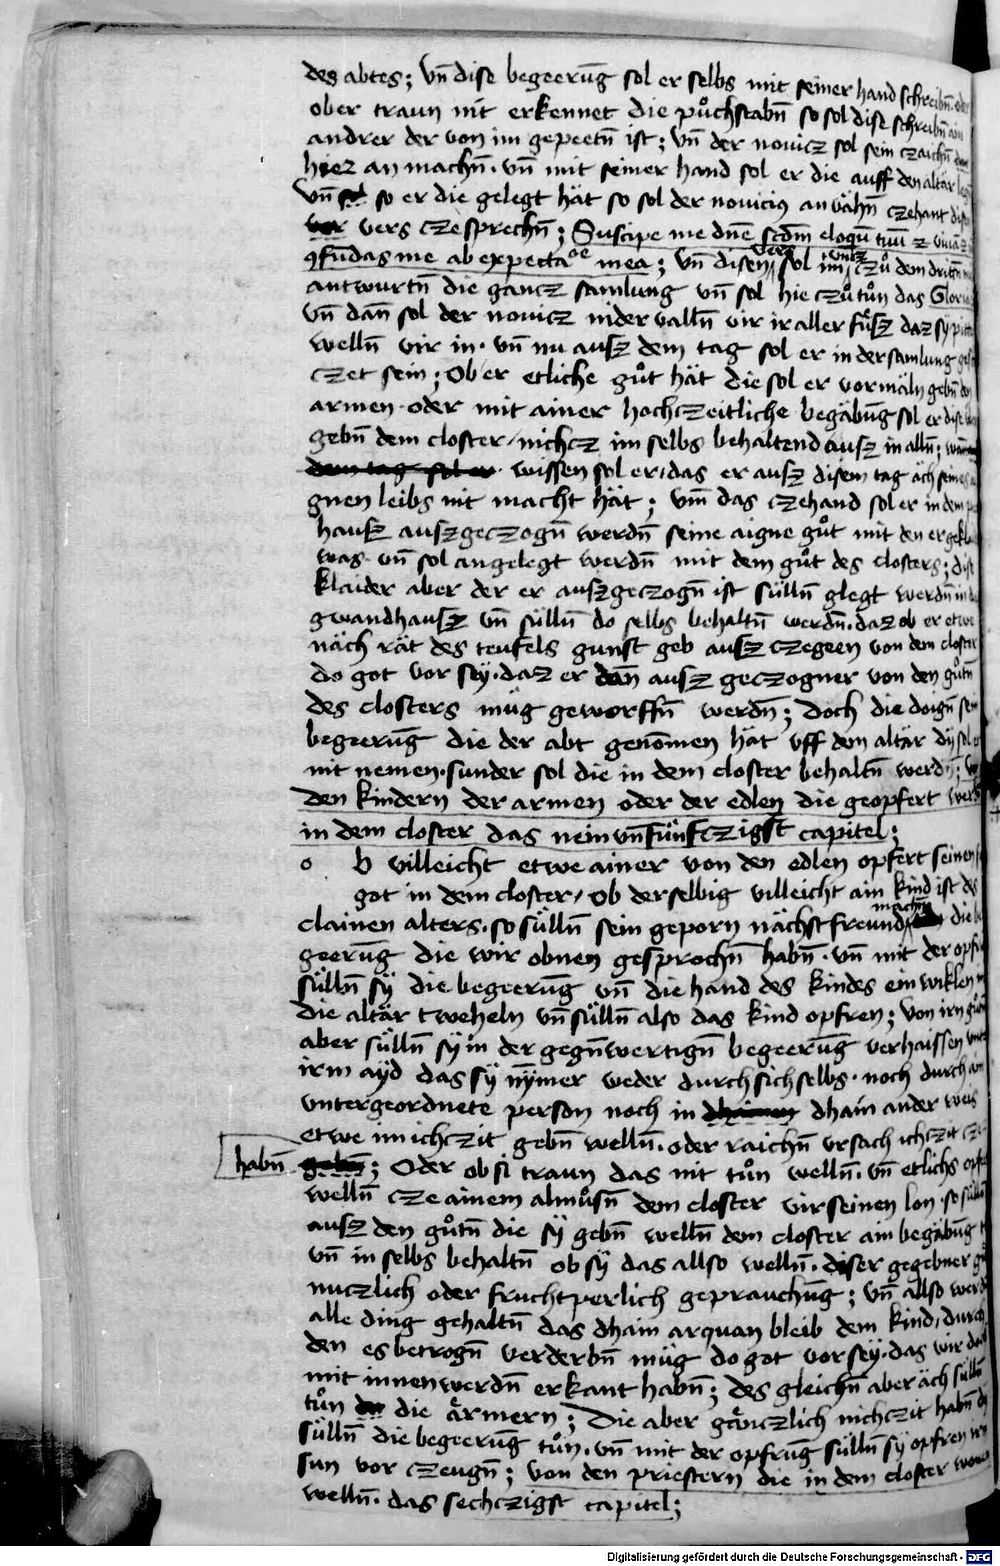 des abtes; vn̄ dise begeerūg sol er selbs mit seiner hand schreibn̄ oder
ober traun nit erkennet die půchstabn̄ so sol dise schreibn̄ ain
andrer der von im gepeetn̄ ist; vn̄ der novicz sol sein czaichn̄
hiez an machn̄. vn̄ mit seiner hand sol er die auff den altär
vn̄ so er die gelegt hät so sol der novicius an vähn̄ czehant
vers czesprechn̄; Suscipe me dn̄e scdm eloqū tuū z viuā
ꝯfūdas me ab expectaōe mea; vn̄ disen vers sol im untz czů dem dritn̄
antwurtn̄ die gancz samlung vn̄ sol hie czů tůn das Gloria
vn̄ dan̄ sol der novicz nider valln̄ vir ir aller fůsz daz sy pittn
welln̄ vir in. vn̄ nu ausz dem tag sol er in der samlung
czet sein; Ob er etliche gůt hät die sol er vormäln gebn̄ den
armen. oder mit ainer hochczeitliche begäbūg sol er dise
gebn̄ dem closter, nichcz im selbs behaltend ausz in alln̄;
wissen sol er, das er ausz disem tag äch seines
gnen leibs nit macht hät; vm̄ das czehand sol er in dem
hausz auszgeczogn̄ werdn̄ seine aigne gůt mit den er geklait
was. vn̄ sol angelegt werdn̄ mit dem gůt des closters; dise
klaider aber der er auszgeczogn̄ ist sülln̄ glegt werdn̄ in
gwandhausz vn̄ sülln̄ do selbs behaltn̄ werdn̄. daz ob er etwe
näch rät des teufels gunst geb ausz czegeen von dem closter
do got vor sey. daz er dan̄ ausz geczogner von den gůtn̄
des closters müg geworffn̄ werdn̄; Doch die doign̄ sein
begeerūg die der abt genōmen hät vff dem altär dy sol er
nit nemen. sunder sol die in dem closter behaltn̄ werdn̄;
den kindern der armen oder der edlen die geopfert werdn̄
in dem closter das neinvn̄fünfczigst capitel;
o b villeicht etwe ainer von den edlen opfert seinen
got in dem closter, Ob derselbig villeicht ain kind ist des
clainen alters. so sülln̄ sein geporn nächst freund machn̄ die be
geerūg die wir obnen gesprochn̄ habn̄. vn̄ mit der opfrūg
sülln̄ sÿ die begeerūg vn̄ die hand des kindes ein wiklen in
die altär tweheln vn̄ sülln̄ also das kind opfren; Von irn gůtn̄
aber sülln̄ sÿ in der gegn̄wertign̄ begeerūg verhaissen mit
irm ayd das sÿ nÿmer weder durch sich selbs. noch durch ain
untergeordnete person noch in dhain ander weis
etwe im ichczit gebn̄ welln̄. oder raichn̄ vrsach ichczit cze
habn̄; Oder ob si traun das nit tůn welln̄. vn̄ etlichs opfern
welln̄ cze ainem almůsn̄ dem closter vir seinen lon. so sülln̄
ausz den gůtn̄ die sÿ gebn̄ welln̄ dem closter ain begäbūg
vn̄ in selbs behaltn̄ ob sÿ das allso welln̄. diser gegebner
nuczlich oder fruchtperlich geprauchūg; vn̄ allso werdn̄
alle ding gehaltn̄ das dhain arquan bleib dem kind, durch
den es betrogn̄ verderbn̄ müg do got vor sey. das wir da
mit innen werdn̄ erkant habn̄; des gleichn̄ aber äch sülln̄
tůn die ärmern; Die aber gänczlich nichczit habn̄ dy
sülln̄ die begeerūg tůn. vn̄ mit der opfrūg sülln̄ sÿ opfren irn
sun vor czeugn̄; von den priestern die in dem closter wonen
welln̄. das sechczigst capitel;
Digitalisierung gefördert durch die Deutsche Forschungsgemeinschaft - DFG